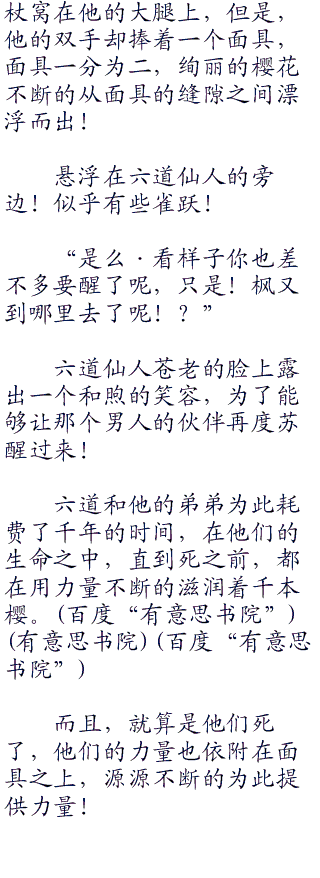 杖窝在他的大腿上，但是，
他的双手却捧着一个面具，
面具一分为二，绚丽的樱花
不断的从面具的缝隙之间漂
浮而出！
悬浮在六道仙人的旁
边！似乎有些雀跃！
“是么·看样子你也差
不多要醒了呢，只是！枫又
到哪里去了呢！？”
六道仙人苍老的脸上露
出一个和煦的笑容，为了能
够让那个男人的伙伴再度苏
醒过来！
六道和他的弟弟为此耗
费了千年的时间，在他们的
生命之中，直到死之前，都
在用力量不断的滋润着千本
樱。(百度“有意思书院”)
(有意思书院)(百度“有意思
书院”)
而且，就算是他们死
了，他们的力量也依附在面
具之上，源源不断的为此提
供力量！